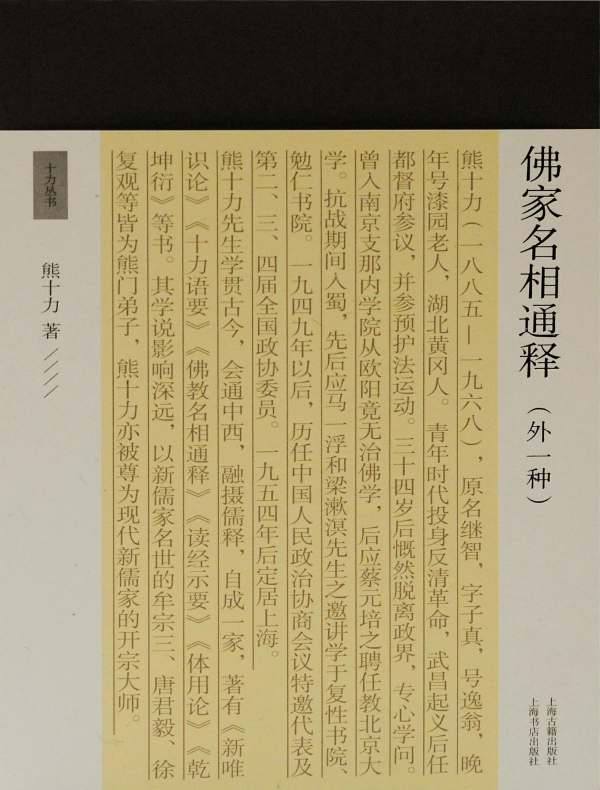 佛家名相通释(外一种)
上海古籍出版社
上海书店出版社
熊十力(一八八五—一九六八),原名继智,字子真,号逸翁,晚
年号漆园老人,湖北黄冈人。青年时代投身反清革命,武昌起义后任
都督府参议,并参预护法运动。三十四岁后慨然脱离政界,专心学问。
曾入南京支那内学院从欧阳竟无治佛学,后应蔡元培之聘任教北京大
学。抗战期间入蜀,先后应马一浮和梁漱溟先生之邀讲学于复性书院、
勉仁书院。一九四九年以后,历任中国人民政治协商会议特邀代表及
第二、三、四届全国政协委员。一九五四年后定居上海。
熊十力先生学贯古今,会通中西,融摄儒释,自成一家,著有《新唯
识论》《十力语要》《佛教名相通释》《读经示要》《体用论》《乾
坤衍》等书。其学说影响深远,以新儒家名世的牟宗三、唐君毅、徐
复观等皆为熊门弟子,熊十力亦被尊为现代新儒家的开宗大师。
十力丛书
熊十力 著 ////